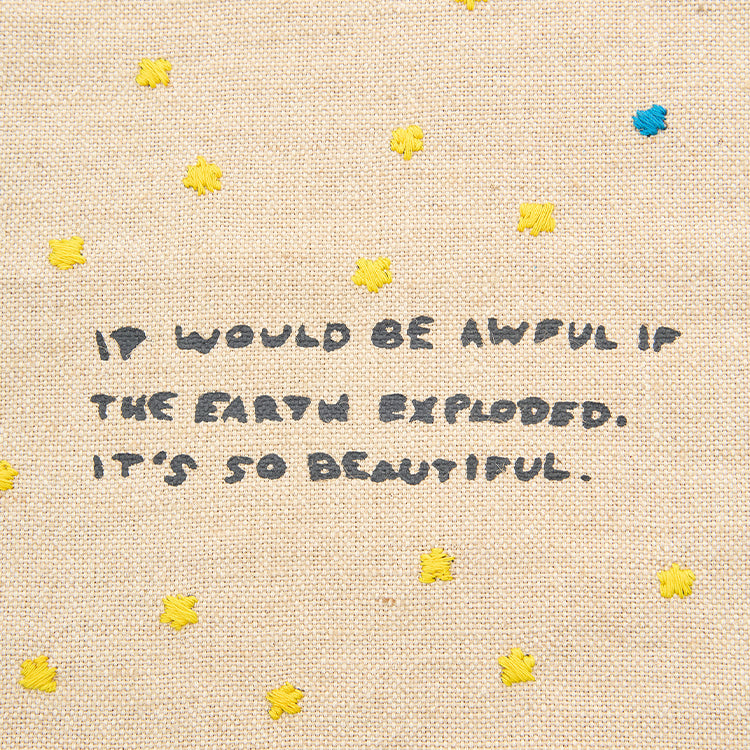 IT WOULD BE AWFUL IF
THE EARTH EXPLODED.
IT'S SO BEAUTIFUL.